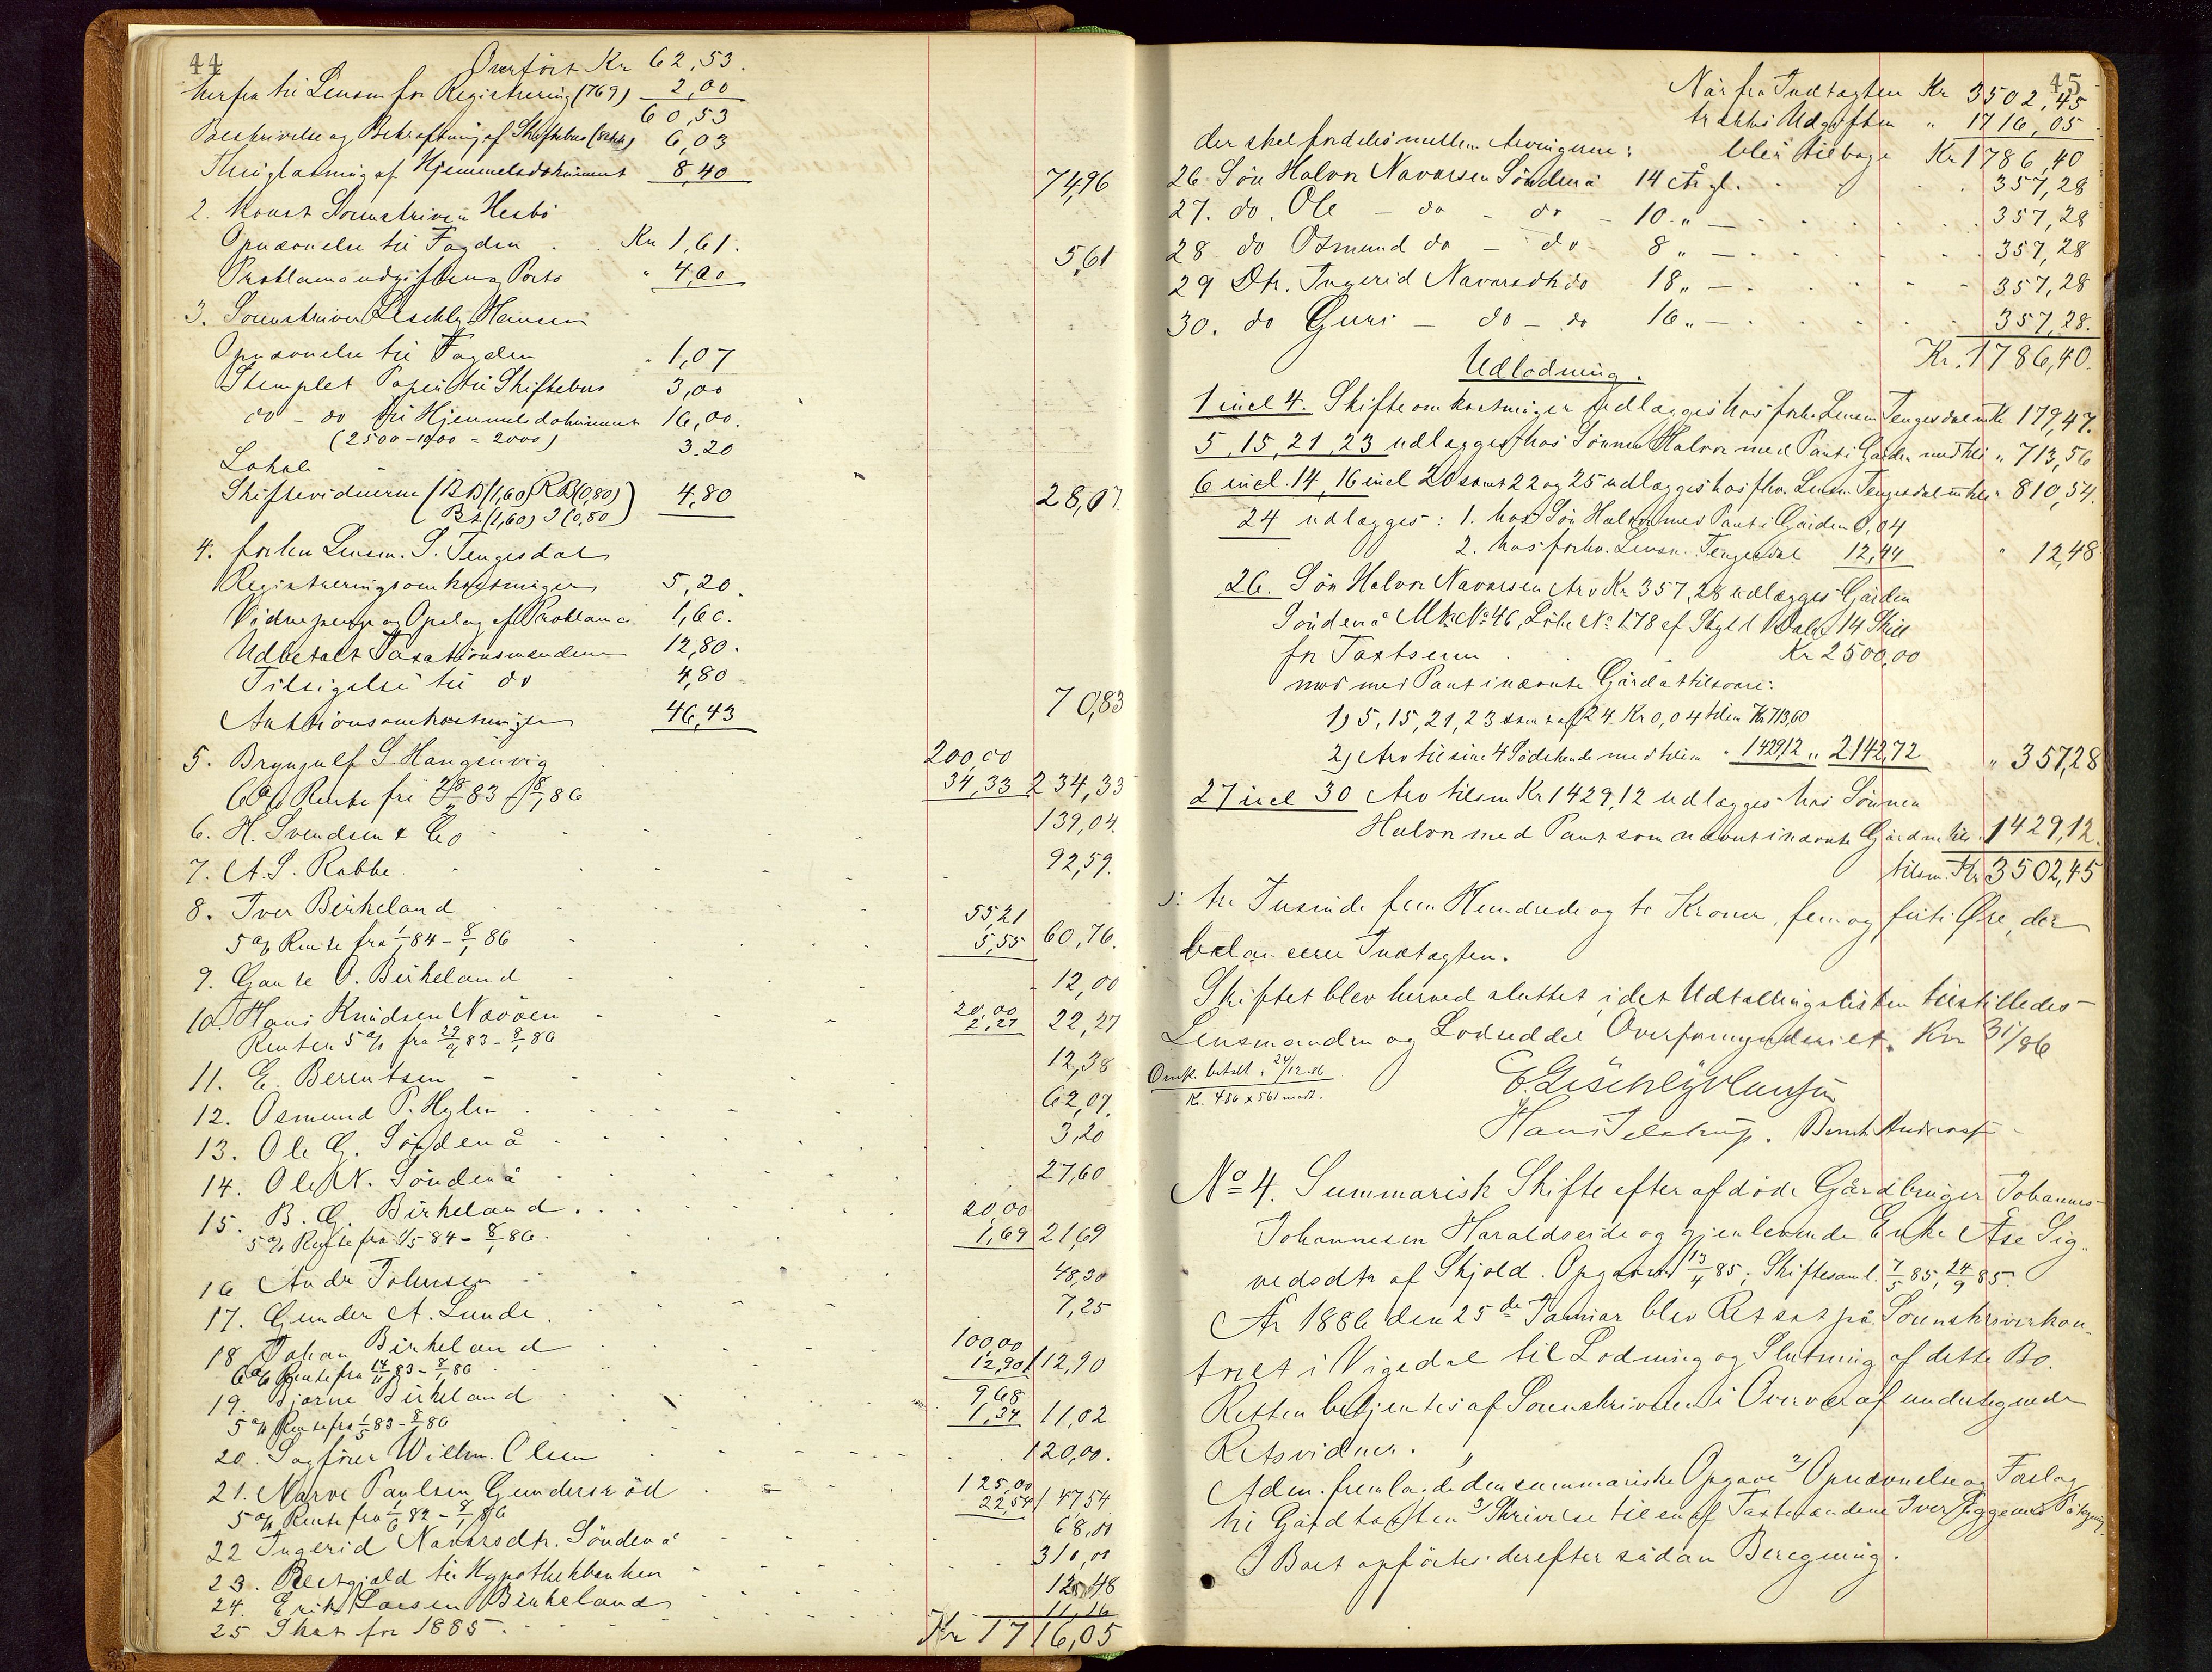 44
Overført Kr 62,53.
herfra til Lensm for Registrering (1769) 2,00
60,53
Beskrivelse og Bekræftning af Skiftebrev 6,03
Thinglæsning af Hjemmelsdokument 8,40 74,96
2. Konst Sorenskriver Hesbö
Opnævnelse til Fogden . . Kr 1,61.
Proklamaudgifter og Porto " 4,00 5,61
3. Sorenskriver Lischly Hansen
Opnævnelse til Fogden " 1,07
Stemplet Papir til Skiftebrev 3,00
do - do til Hjemmelsdokument 16,00.
(2500 - 1900 = 2000)
Lokale 3.20
Skiftevidnerne (BB (1,60) RB (0,80) 4,80 28,07.
Bt (1,60) J (0,80)
4. forhen Lensm. S. Tengesdal
Registreringsomkostninger 5,20.
Vidnepenge og Opslag af Proklama 1,60.
Udbetalt Taxationsmændene 12,80.
Tilsigelse til do 4,80
Auktionsomkostninger 46,43 70,83
5. Brynjulf S Hangenvig 200,00
6 % Rente fra 28/2 83 - 8/1 86 34,33 234,33
6. H. Svendsen & Co 139,04.
7. A. S. Rabbe. 92,59.
8. Iver Birkeland 55,21
5 % Rente fra 1/1 84 - 8/1 86 5,55 60,76.
9. Gaute O. Birkeland 12,00
10. Hans Knudsen Nævöen 20,00
Renten 5 % fra 29/9 83 - 8/1 86 2,27 22,27
11. E. Berentsen 12,38
12. Osmund P. Hylen 62,07.
13. Ole G. Söndenå 3,20
14. Ole N. Söndenå 27,60
15. B. G. Birkeland 20,00
5 % Rente fra 1/5 84 - 8/1 86. 1,69 21,69
16 Andr Johnsen 48,30
17. Gunder A. Lunde. 7,25
18 Johan Birkeland 100,00
6 % Rente fra 14/11 83 - 8/1 86 12,90 112,90
19. Bjarne Birkeland 9,68
5 % Rente fra 1/5 83 - 8/1 86 1,34 11,02
20. Sagförer Wilhm. Olsen 120,00.
21. Narve Paulsen Gundersröd 125,00
5 % Rente fra 1/6 82 - 8/1 86 22,54 147,54
22 Ingerid Navarsdtr. Söndenå 68,00
23. Restgjæld til Hypothekbanken 310,00
24. Erik Larsen Birkeland 12,48
25 Skat for 1885. 11,16
Kr 1716,05
45
Når fra Indtægten Kr 3502,45
trækkes Udgiften " 1716,05
blir tilbage Kr 1786,40
der skal fordeles mellem Arvingerne:
26 Sön Halvor Navarsen Söndenå 14 År gl. 357,28
27. do. Ole - do - do - 10 " - 357,28
28 do Osmund do - do - 8 " - 357,28
29 Dtr. Ingerid Navarsdtr do 18 " - 357,28
30. do Guri - do - do 16 " - 357,28.
Kr. 1786,40.
Udlodning.
1 incl 4. Skifteomkostninger udlægges hos forhv. Lensm Tengesdal m Kr 179,47.
5, 15, 21, 23 udlægges hos Sönnen Halvor med Pant i Gården med Kr " 713,56
6 incl. 14, 16 incl 20 samt 22 og 25 udlægges hos fhv. Lensm. Tengesdal m Kr " 810,54.
24 udlægges: 1. hos Sön Halvor med Pant i Gården 0,04
2. hos forhv. Lensm. Tengesdal 12,44 " 12,48
26. Sön Halvor Navarsen Arv Kr 357,28 udlægges Gården
Söndenå M No 46, Löbe No 178 af Skyld 1 Daler 14 Skill
for Taxtsum . Kr 2500,00
mod med Pant i nævnte Gård at tilsvare:
1) 5, 15, 21, 23 samt af 24 Kr 0,04 tilsm Kr 713,60
2) Arv til sine 4 Södskende med tilsm " 1429,12 " 2142,72 " 357,28
27 incl 30 Arv tilsm Kr 1429,12 udlægges hos Sönnen
Halvor med Pant som nævnt i nævnte Gård m tils. 1429,12.
tilsm. Kr 3502,45
ɔ: tre Tusinde fem Hundrede og to Kroner, fem og firti Øre, der
balancerer Indtægten.
Skiftet blev herved sluttet, idet Udtællingslisten tilstilledes
Lensmanden og Lodseddel Overformynderiet. Kvn 31/86
Omk. betalt 24/12.86
Kr. 486 x 561 modt.
E. Lischly Hansen
Hans Telstrup. Bernt Anderssen
No 4. Summarisk Skifte efter afdöde Gårdbruger Johannes
Johannesen Haraldseide og gjenlevende Enke Åse Sig-
vedsdtr af Skjold. Opgavet 13/4 85; Skiftesaml. 7/5 85, 24/9 85.
År 1886 den 25de Januar blev Ret sat på Sorenskriverkon-
toret i Vigedal til Lodning og Slutning af dette Bo.
Retten betjentes af Sorenskriveren i Overvær af undertegnede
Retsvidner.
Adm. fremlagde den summariske Opgave 2/ Opnævnelse og Forslag
til Gårdtaxten 3/ Skrivelse til en af Taxtmændene Iver med Påtegning.
I Boet opförtes derefter sådan Beregning.